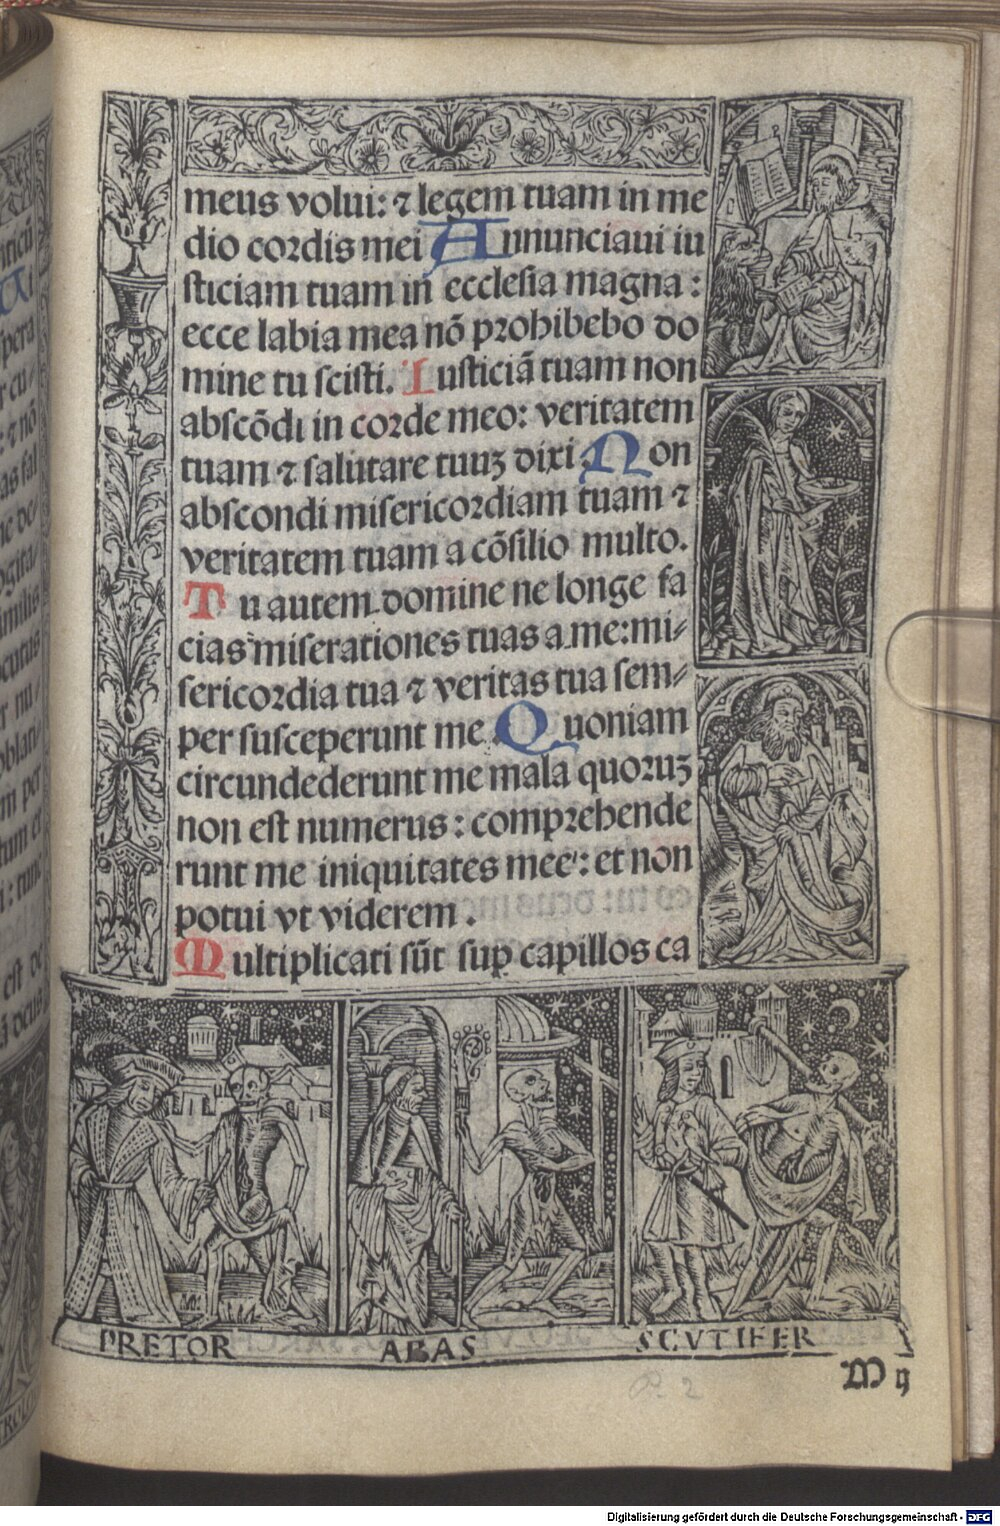 meus volui: ⁊ legem tuam in me
dio cordis mei Annunciaui iu
sticiam tuam in ecclesia magna:
ecce labia mea nō prohibebo do
mine tu scisti. Iusticiā tuam non
abscōdi in corde meo: veritatem
tuam ⁊ salutare tuuꝫ dixi. Non
abscondi misericordiam tuam ⁊
veritatem tuam a cōsilio multo.
Tu autem domine ne longe fa
cias miserationes tuas a me: mi⸗
sericordia tua ⁊ veritas tua sem⸗
per susceperunt me. Quoniam
circundederunt me mala quoruꝫ
non est numerus: comprehende
runt me iniquitates mee: et non
potui vt viderem.
Multiplicati sūt suꝑ capillos ca
PRETOR ABAS SCVTIFER
M ij
P. 2
Digitalisierung gefördert durch die Deutsche Forschungsgemeinschaft - DFG